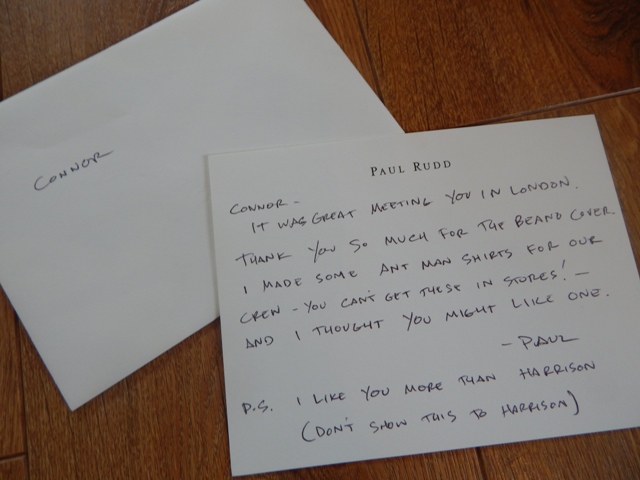 CONNOR
PAUL RUDD
CONNOR -
IT WAS GREAT MEETING YOU IN LONDON.
THANK YOU SO MUCH FOR THE BEANO COVER
I MADE SOME ANT MAN SHIRTS FOR OUR
CREW - YOU CAN'T GET THESE IN STORES! -
AND I THOUGHT YOU MIGHT LIKE ONE.
- PAUL
P.S. I LIKE YOU MORE THAN HARRISON
(DON'T SHOW THIS TO HARRISON)